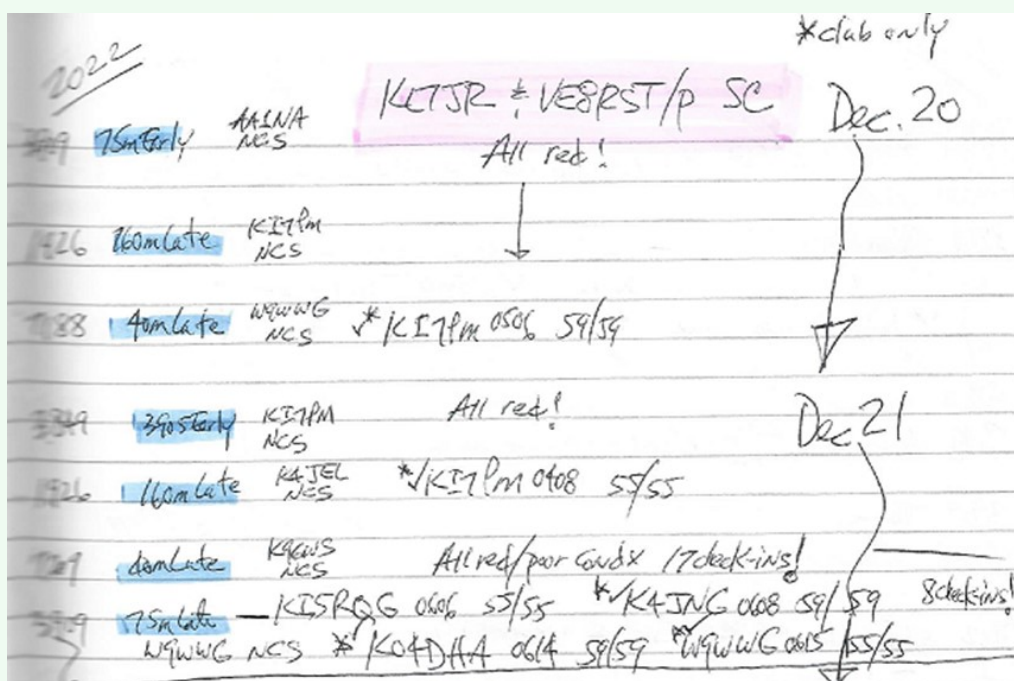 *club only
2022
KL7JR & VE8RST/p SC Dec. 20
75mEarly AA1NA
NCS
All red!
1926 160mLate KI7PM
NCS
40mLate W9WWG
NCS *KI7PM 0506 59/59
3905Early KI7PM
NCS All red! Dec 21
1926 160mLate K4JEL
NCS *KI7PM 0408 55/55
40mLate NCS All red/poor condx 17 check-ins!
75mLate — KI5RQG 0606 55/55 *K4JNG 0608 59/59 8 check-ins!
W9WWG NCS *KO4DHA 0614 59/59 *W9WWG 0615 55/55